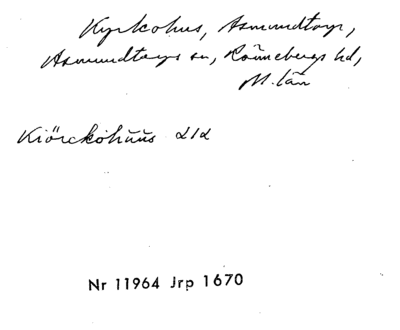 Kyrkohus, Asmundtorp,
Asmundtorps sn, Rönnebergs hd,
M.län
Kiörckohüüs 212
Nr 11964 Jrp 1670